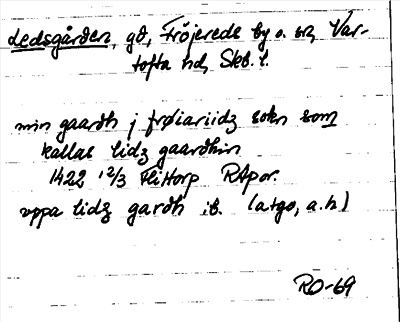 Ledsgården, gd, Fröjereds by o. sn, Var-
tofta hd, Skb. l.
min gaardh j frøiariidz sokn som
kallas lidz gaardhin
1422 12/3 Flittorp RApor.
uppa lidz gardh ib. (atgo, a.h)
RO-69